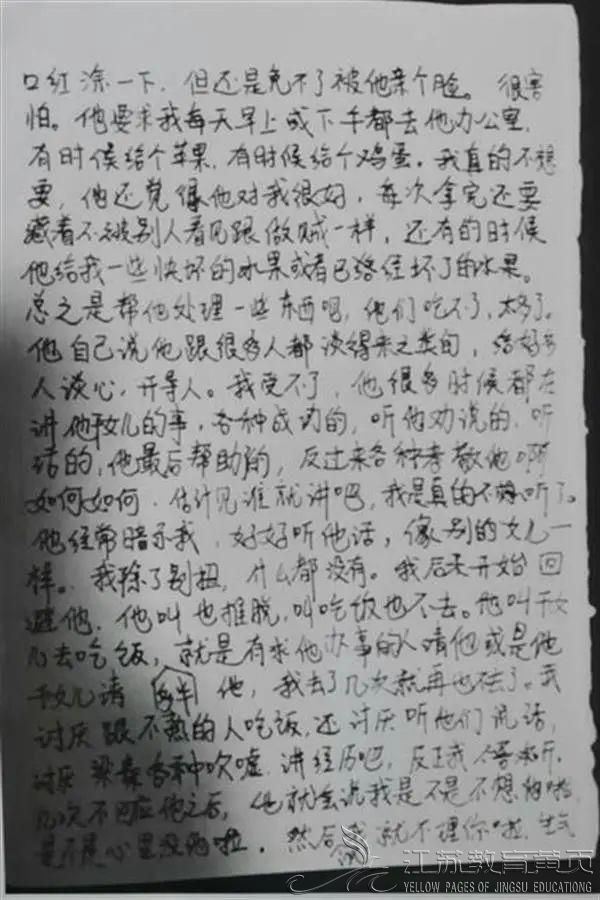 口红涂一下，但还是免不了被他亲个脸。很害
怕。他要求我每天早上或下午都去他办公室，
有时候给个苹果，有时候给个鸡蛋。我真的不想
要，他还觉得他对我很好，每次拿完还要
藏着不被别人看见跟做贼一样，还有的时候
他给我一些快坏的水果或者已经坏了的水果。
总之是帮他处理一些东西吧，他们吃不了，太多了。
他自己说他跟很多人都谈得来之类的，给好多
人谈心，开导人。我受不了，他很多时候都在
讲他干女儿的事，各种成功的，听他劝说的，听
话的，他最后帮助的，反过来各种孝敬他啊
如何如何，估计见谁就讲吧，我是真的不想听了。
他经常暗示我，好好听他话，像别的女儿一
样。我除了别扭，什么都没有。我后来开始回
避他，他叫也推脱，叫吃饭也不去。他叫干女
儿去吃饭，就是有求他办事的人请他或是他
干女儿请他，我去了几次就再也不去了。我
讨厌跟不熟的人吃饭，还讨厌听他们说话，
讨厌 各种吹嘘，讲经历吧，反正我
几次不回应他之后，他就会说我是不是不想他啦，
是不是心里没他啦，然后我就不理你啦，生气
江苏教育黄页
YELLOW PAGES OF JINGSU EDUCATIONG